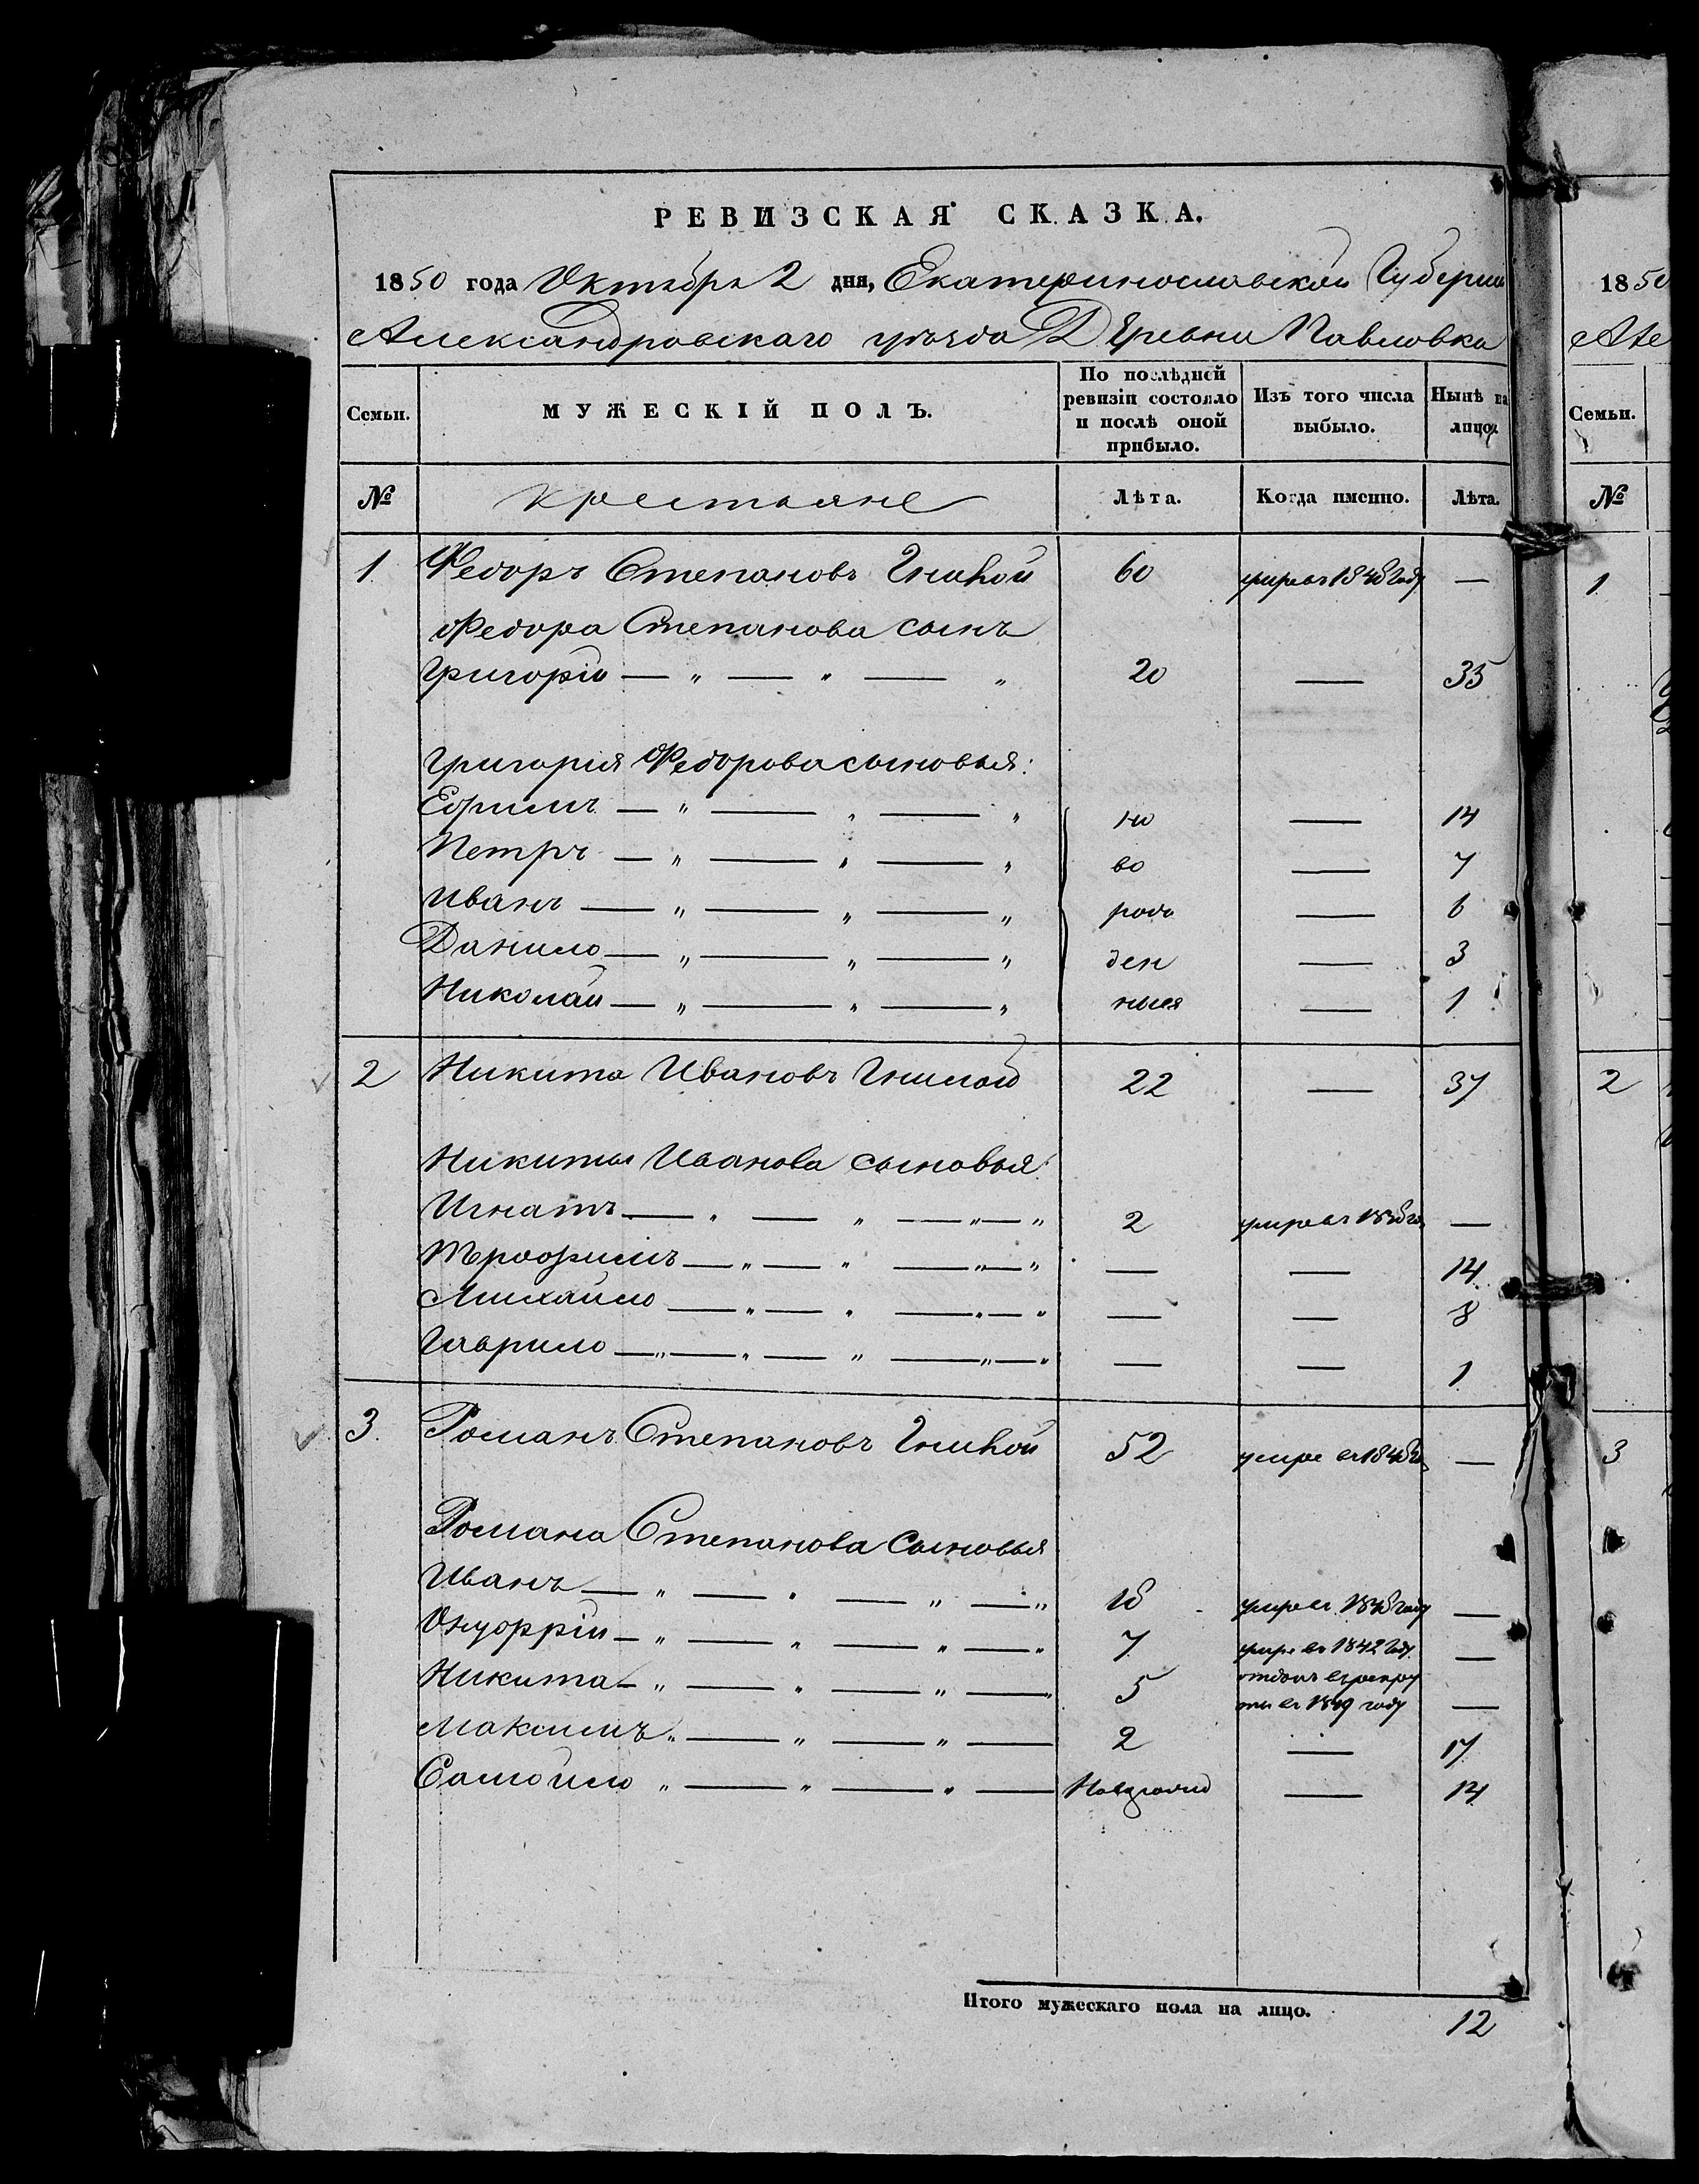 РЕВИЗСКАЯ СКАЗКА.
1850 года Октября 2 дня, Екатеринославской Губерніи
Александровскаго уѣзда Деревни Павловка
Семьи. МУЖЕСКІЙ ПОЛЪ. По послѣдней ревизіи состояло и послѣ оной прибыло. Изъ того числа выбыло. Нынѣ на лицо.
№ Крестьяне Лѣта. Когда именно. Лѣта.
1 Федоръ Степановъ 60 умре въ —
Федора Степанова сынъ
Григорій — " — " — " 20 — 35
Григорія Федорова сыновья:
Ефимъ — " — " — " но — 14
Петръ — " — " — " во — 7
Иванъ — " — " — " рож — 6
Данило — " — " — " ден — 3
Николай — " — " — " ныея — 1
2 Никита Ивановъ 22 — 37
Никиты Иванова сыновья:
Игнатъ — " — " — " — " 2 умре въ —
Трофимъ — " — " — " — " — — 14
Михайло — " — " — " — " — — 8
Гаврило — " — " — " — " — " — — 1
3. Романъ Степановъ 52 умре въ —
Романа Степанова Сыновья
Иванъ — " — " — " — " умре въ году —
Онуфрій — " — " — " — " 7 умре въ 1842 году —
Никита — " — " — " — " 5 отданъ въ рекру
ты въ 1849 году —
Максимъ " — " — " — 2 — 17
Самойло " — " — " — Новорожд — 14
Итого мужескаго пола на лицо. 12
1850
Але
Семьи.
№
1
2
3